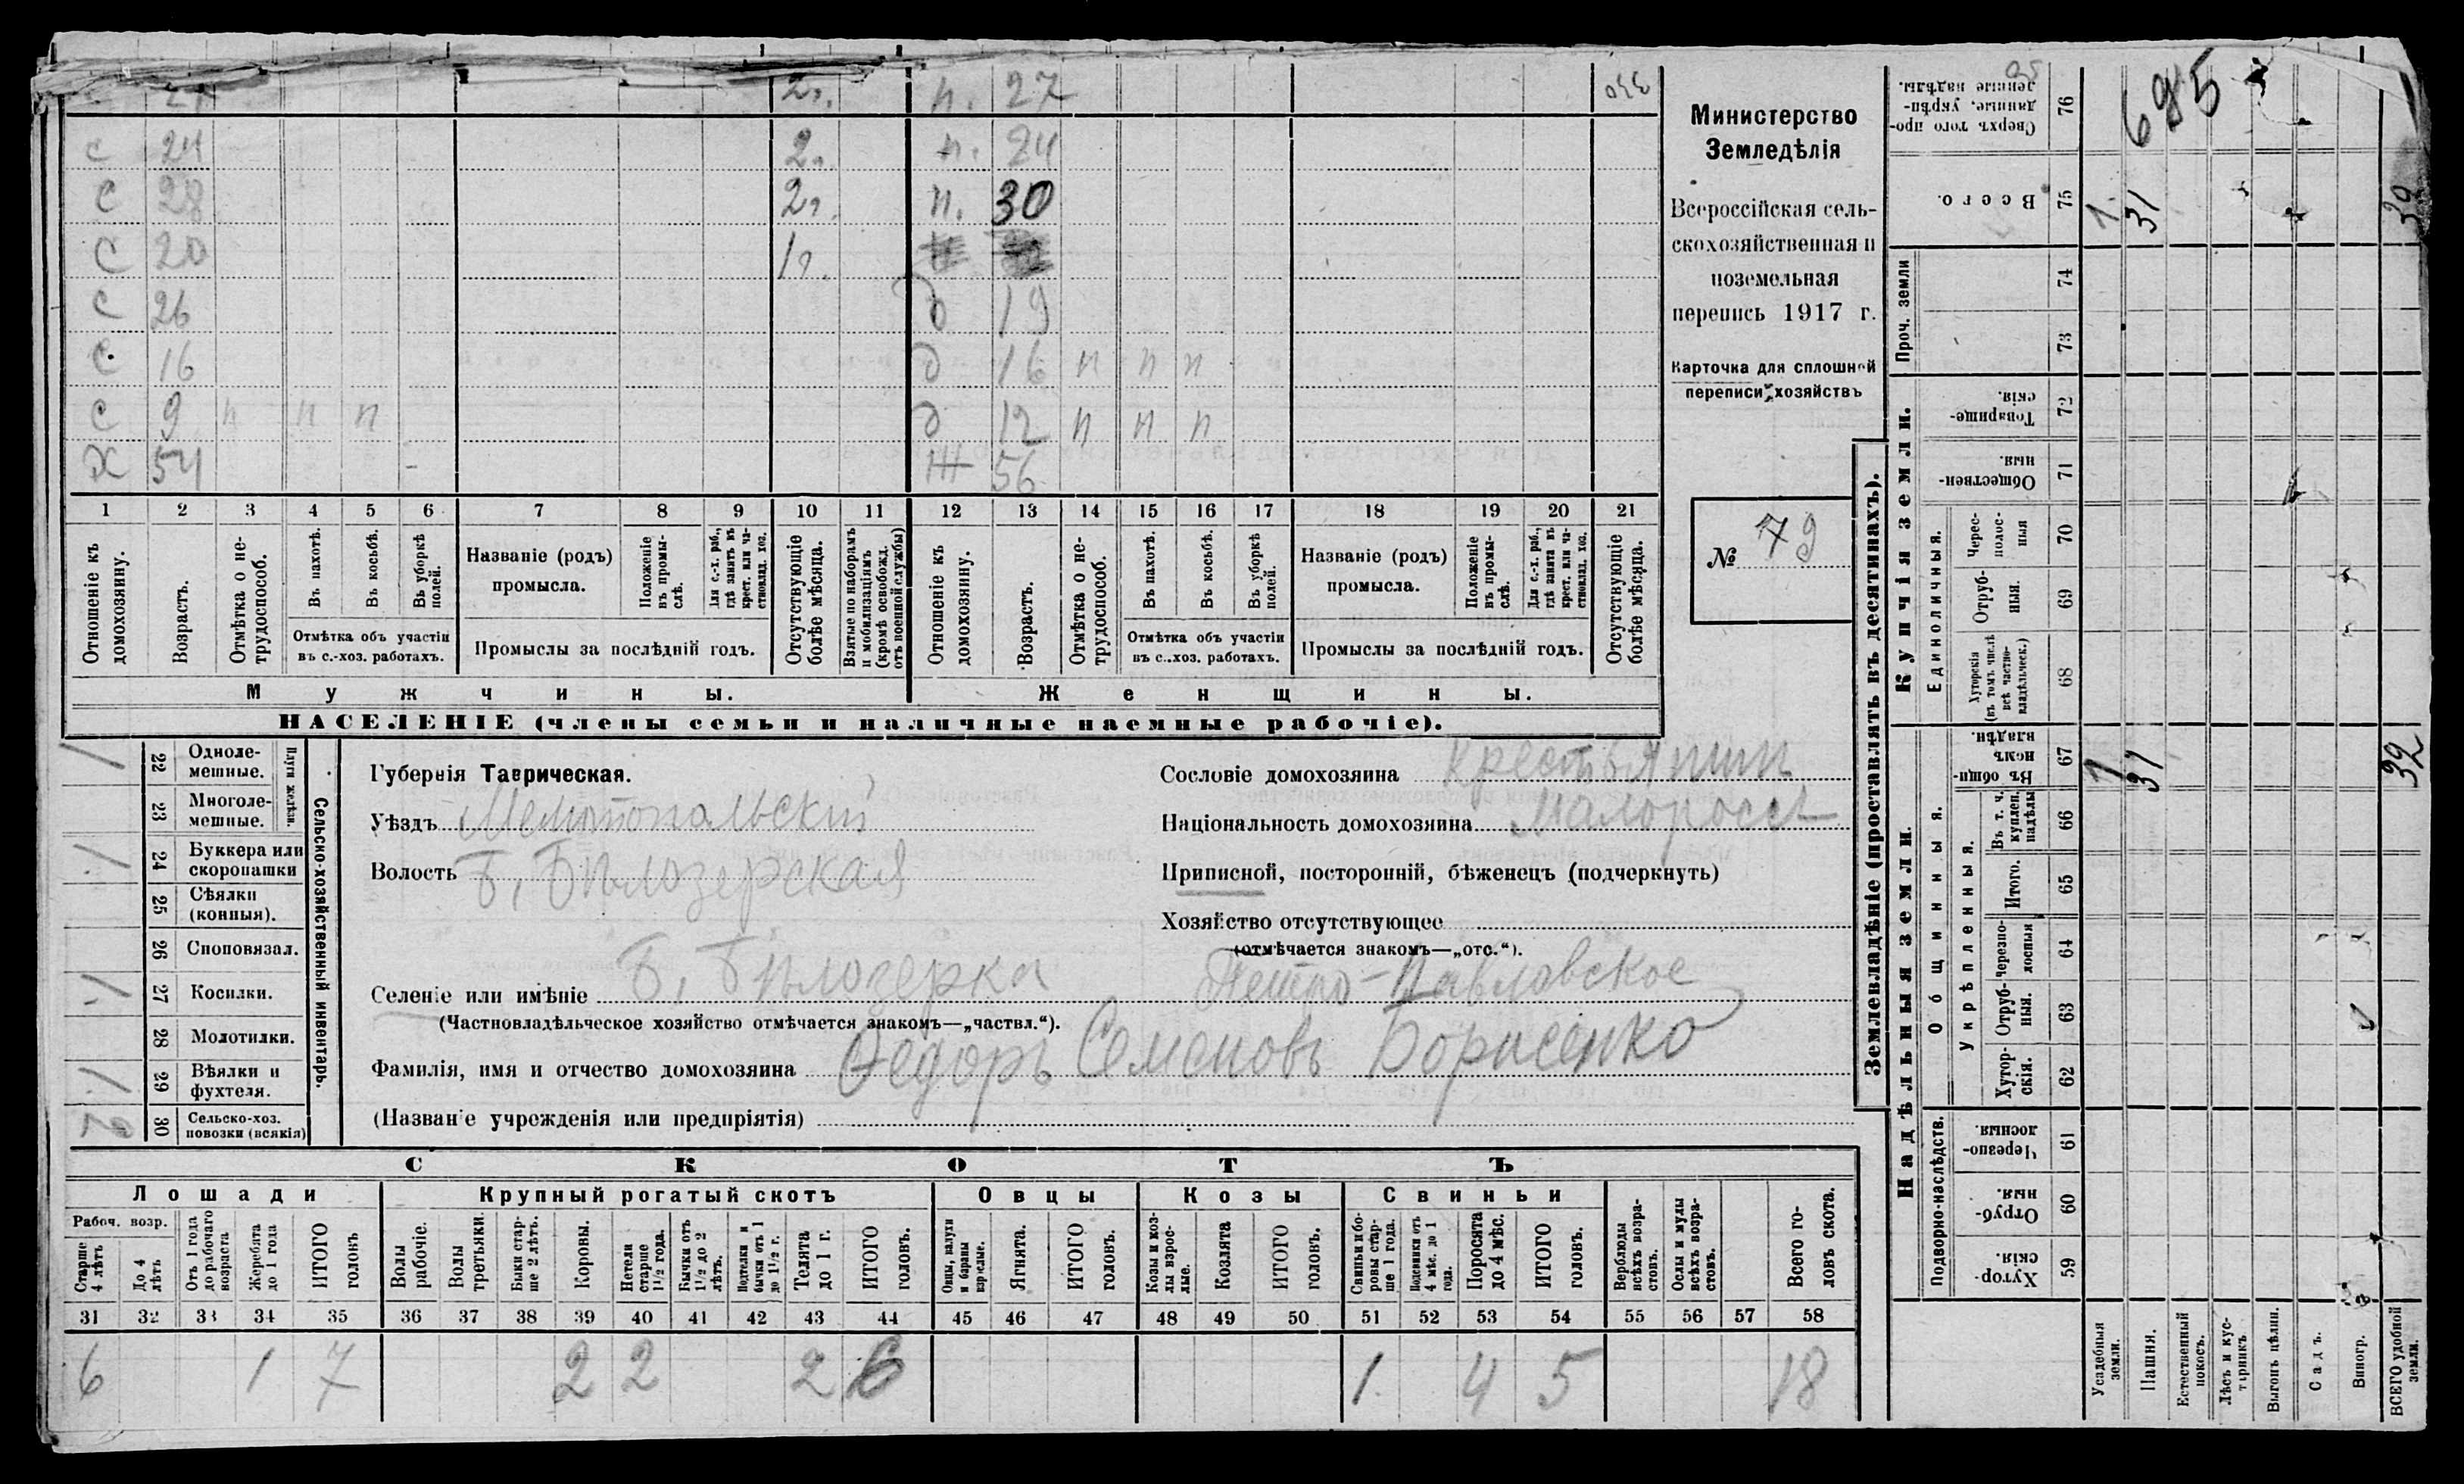 2г. п. 27
с 24 2г. п. 24
с 28 2г. п. 30
с 20 1г.
с 26 д 19
с 16 д 16 н н н
с 9 н н н д 12 н н н
Х 54 - Ж 56
1 2 3 4 5 6 7 8 9 10 11 12 13 14 15 16 17 18 19 20 21
Отношеніе къ домохозяину.
Возрастъ.
Отмѣтка о не-трудоспособ.
Въ пахотѣ.
Въ косьбѣ.
Въ уборкѣ полей.
Отмѣтка объ участіи
въ с.-хоз. работахъ.
Названіе (родъ)
промысла.
Положеніе въ промы-слѣ.
Для с.-х. раб., гдѣ занятъ въ крест. или ча-стновлад. хоз.
Промыслы за послѣдній годъ.
Отсутствующіе болѣе мѣсяца.
Взятые по наборамъ и мобилизаціямъ (кромѣ освобожд. отъ военной службы)
Отношеніе къ домохозяину.
Возрастъ.
Отмѣтка о не-трудоспособ.
Въ пахотѣ.
Въ косьбѣ.
Въ уборкѣ полей.
Отмѣтка объ участіи
въ с..хоз. работахъ.
Названіе (родъ)
промысла.
Положеніе въ промы-слѣ.
Для с.-х. раб., гдѣ занята въ крест. или ча-стновлад. хоз.
Промыслы за послѣдній годъ.
Отсутствующіе болѣе мѣсяца.
Мужчины. Женщины.
НАСЕЛЕНІЕ (члены семьи и наличные наемные рабочіе).
Министерство
Земледѣлія
Всероссійская сель-
скохозяйственная и
поземельная
перепись 1917 г.
Карточка для сплошной
переписи хозяйствъ
№ 79
Сельско-хозяйственный инвентарь.
Плуги желѣзн.
/ 22 Одноле-мешные.
23 Многоле-мешные.
/ 24 Буккера или скоропашки
25 Сѣялки (конныя).
26 Сноповязал.
/ 27 Косилки.
28 Молотилки.
/ 29 Вѣялки и фухтеля.
30 Сельско-хоз. повозки (всякія)
Губернія Таврическая.
Уѣздъ Мелитопольский
Волость Б. Бѣлозерская
Селеніе или имѣніе Б. Бѣлозерка Петро-Павловское
(Частновладѣльческое хозяйство отмѣчается знакомъ—„частвл.“).
Фамилія, имя и отчество домохозяина Федоръ Семеновъ Борисенко
(Названіе учрежденія или предпріятія)
Сословіе домохозяина Крестьянин
Національность домохозяина Малороссъ
Приписной, посторонній, бѣженецъ (подчеркнуть)
Хозяйство отсутствующее
(отмѣчается знакомъ—„отс.“).
СКОТЪ
Лошади Крупный рогатый скотъ Овцы Козы Свиньи
Рабоч. возр.
Старше 4 лѣтъ
До 4 лѣтъ
Отъ 1 года до рабочаго возраста
Жеребята до 1 года
ИТОГО головъ
Волы рабочіе.
Волы третьяки.
Быки стар-ше 2 лѣтъ.
Коровы.
Нетели старше 1½ года.
Бычки отъ 1½ до 2 лѣтъ.
Подтелки и бычки отъ 1 до 1½ г.
Телята до 1 г.
ИТОГО головъ.
Овцы, валухи и бараны взрослые.
Ягнята.
ИТОГО головъ.
Козы и коз-лы взрос-лые.
Козлята
ИТОГО головъ.
Свиньи и бо-ровы стар-ше 1 года.
Подсвинки отъ 4 мѣс. до 1 года.
Поросята до 4 мѣс.
ИТОГО головъ.
Верблюды всѣхъ возра-стовъ.
Ослы и мулы всѣхъ возра-стовъ.
Всего го-ловъ скота.
31 32 33 34 35 36 37 38 39 40 41 42 43 44 45 46 47 48 49 50 51 52 53 54 55 56 57 58
6 1 7 2 2 2 6 1. 4 5 18
Землевладѣніе (проставлять въ десятинахъ).
Надѣльныя земли. Купчія земли.
Проч. земли
Подворно-наслѣдств.
Общинныя.
Укрѣпленныя.
Единоличныя.
Сверхъ того про-данные, укрѣп-ленные надѣлы. 76 685
Всего. 75 1. 31 32
74
73
Товарище-скія. 72
Обществен-ныя. 71
Черес-полос-ныя 70
Отруб-ныя. 69
Хуторскія (въ томъ числѣ всѣ частно-владѣльческ.) 68
Въ общи-нномъ владѣн. 67 1 31 32
Въ т. ч. куплен. надѣлы 66
Итого. 65
Черезпо-лосныя 64
Отруб-ныя. 63
Хутор-скія. 62
Черезпо-лосныя. 61
Отруб-ныя. 60
Хутор-скія. 59
Усадебныя земли.
Пашня.
Естественный покосъ.
Лѣсъ и кус-тарникъ
Выгонъ цѣлин.
Садъ.
Виногр.
ВСЕГО удобной земли.